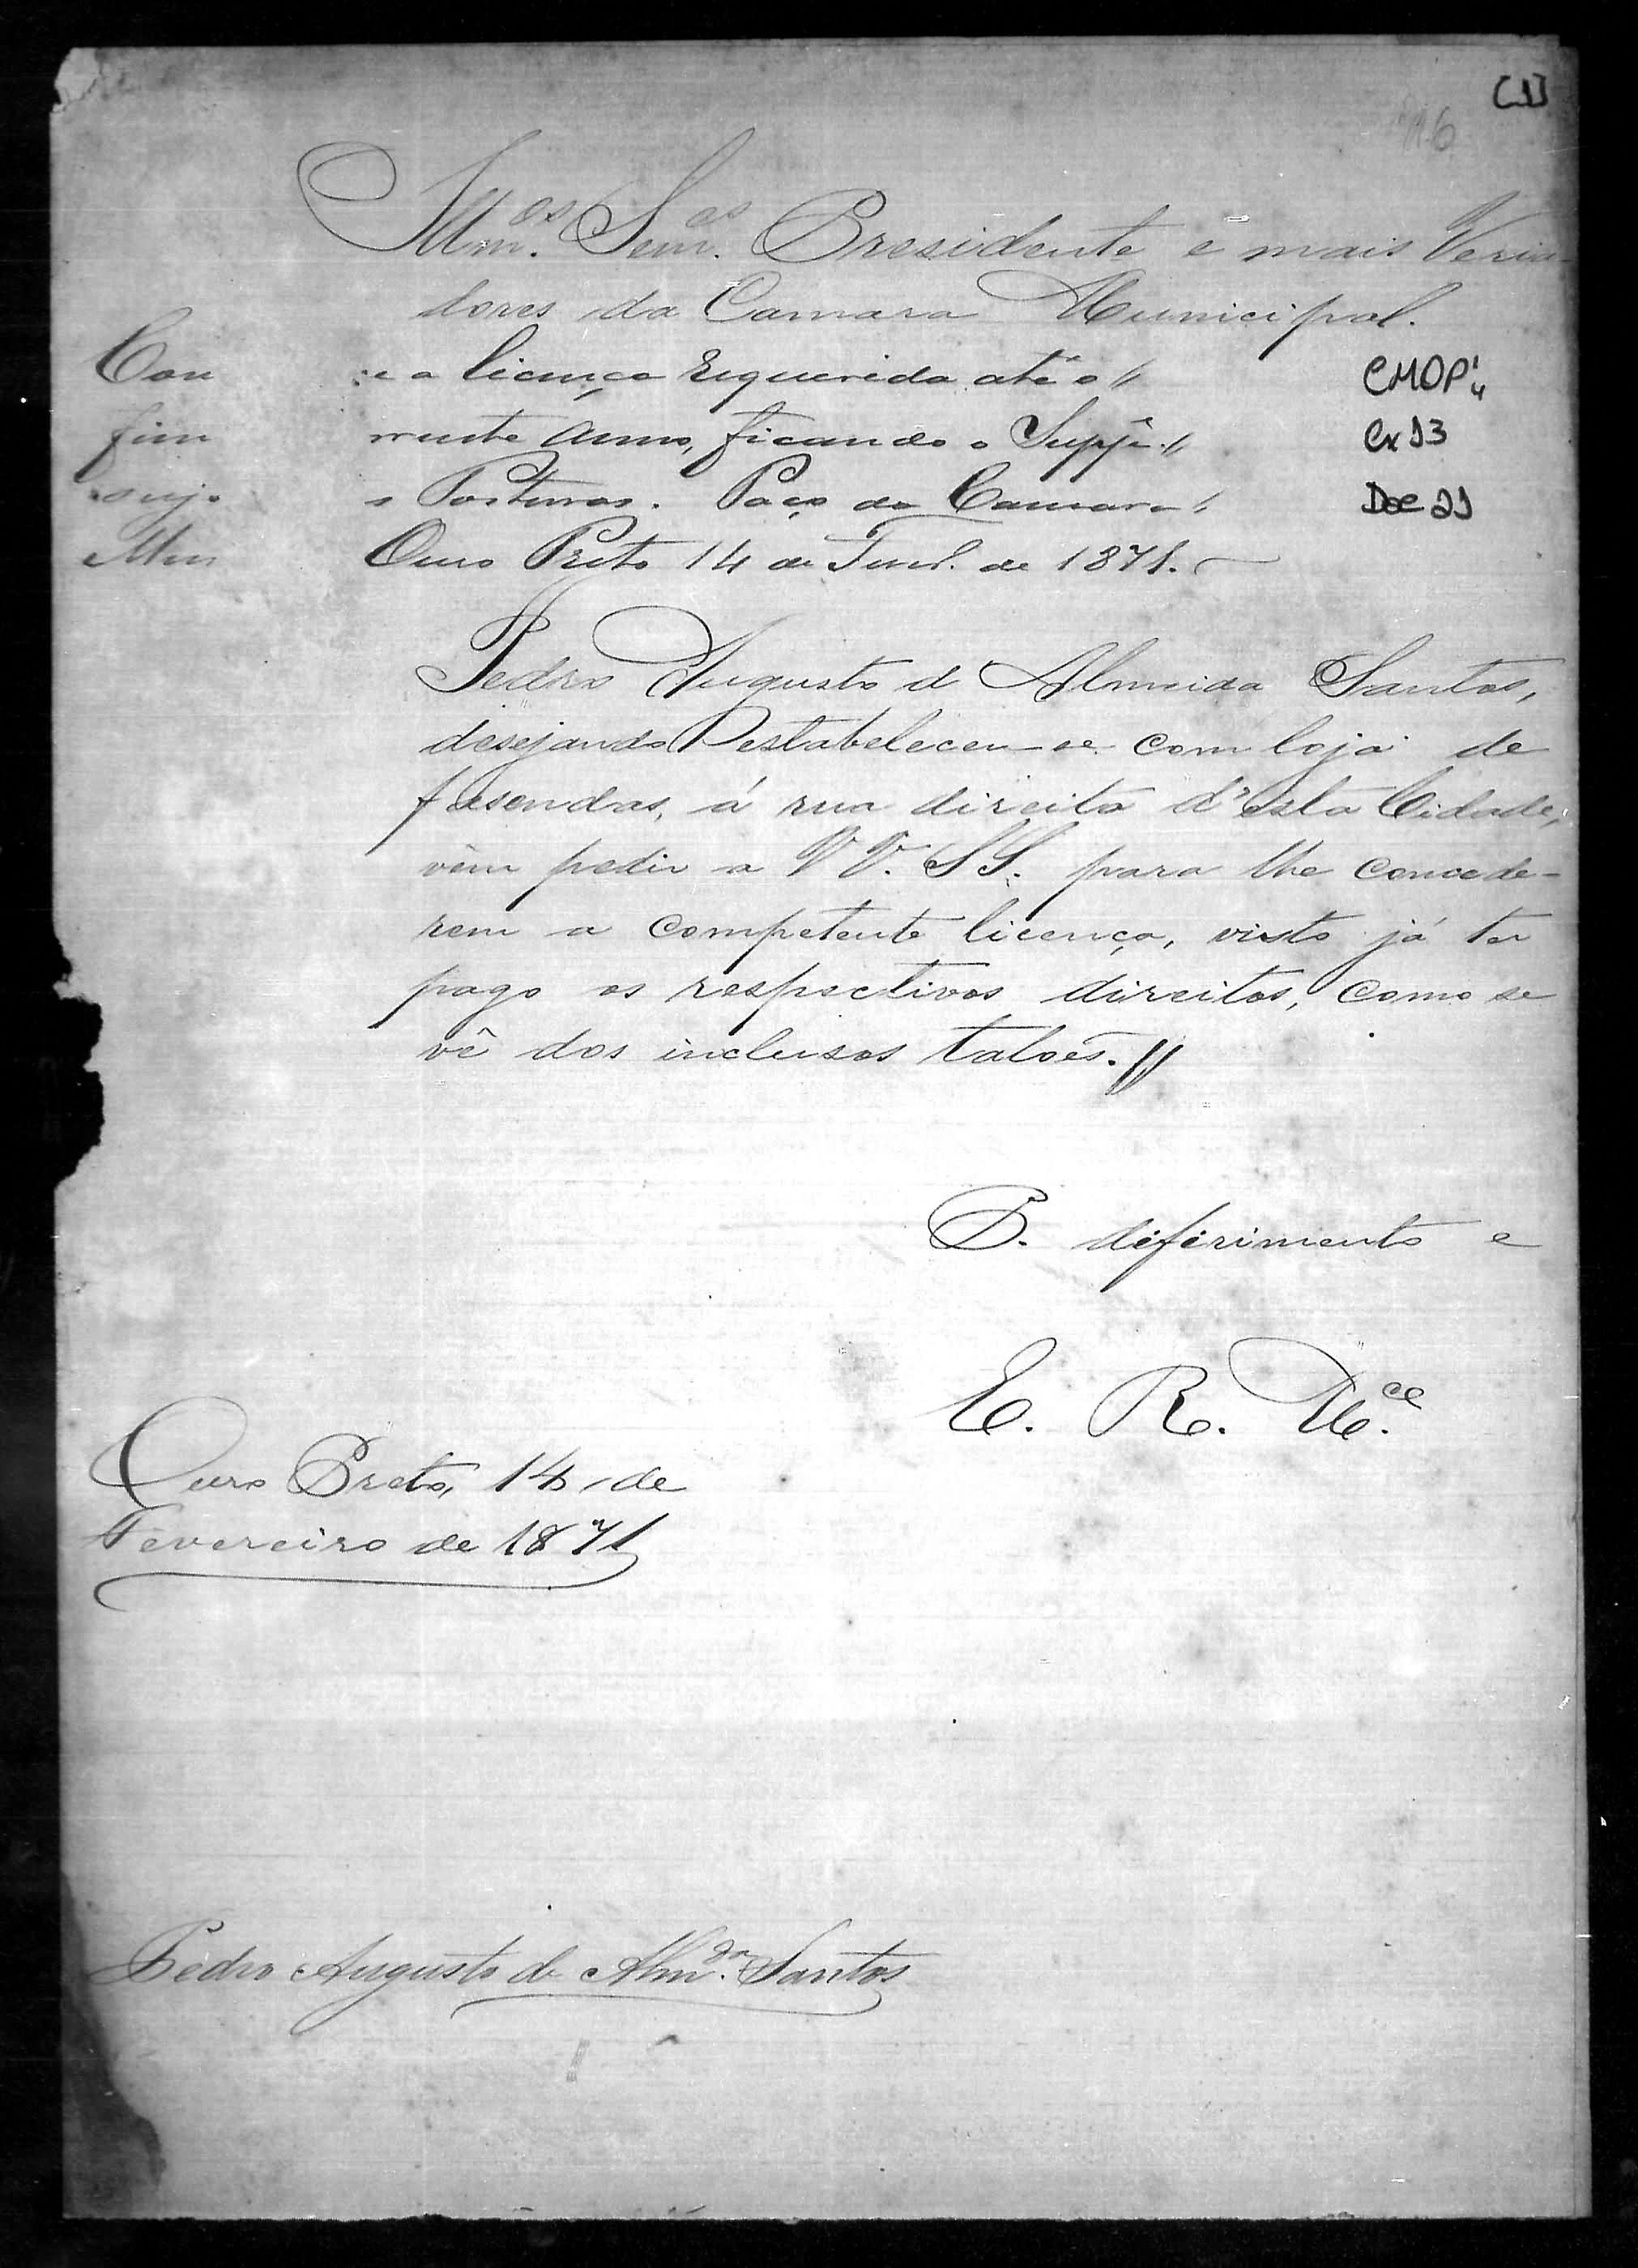 [1]
Illm.os Senr.es Presidente e mais Verea-
dores da Camara Municipal.
Con e a licença requerida até o //
CMOP
fim rrente Anno, ficando o Supp.e //
Cx 13
sujo s Posturas. Paço da Camara //
Doc 21
Ouro Preto 14 de Fever.º de 1871.
Pedro Augusto d'Almeida Santos,
desejando estabelecer-se com loja de
fasendas, á rua direita d'esta Cidade,
vêm pedir a VV. SS. para lhe concede-
rem a competente licença, visto já ter
pago os respectivos direitos, como se
vê dos inclusos talões. //
P. diferimento e
E. R. M.ce
Ouro Preto, 14 de
Fevereiro de 1871
Pedro Augusto de Alm.da Santos